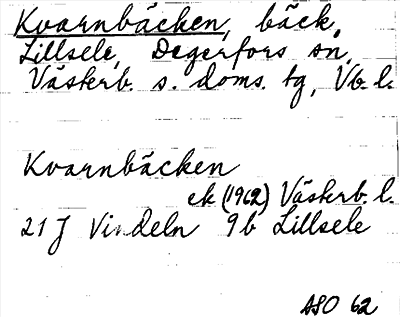 Kvarnbäcken, bäck,
Lillsele, Degerfors sn,
Västerb. s. doms. tg, Vb. l.
Kvarnbäcken
ek (1962) Västerb. l.
21 J Vindeln 9b Lillsele
ASO 62